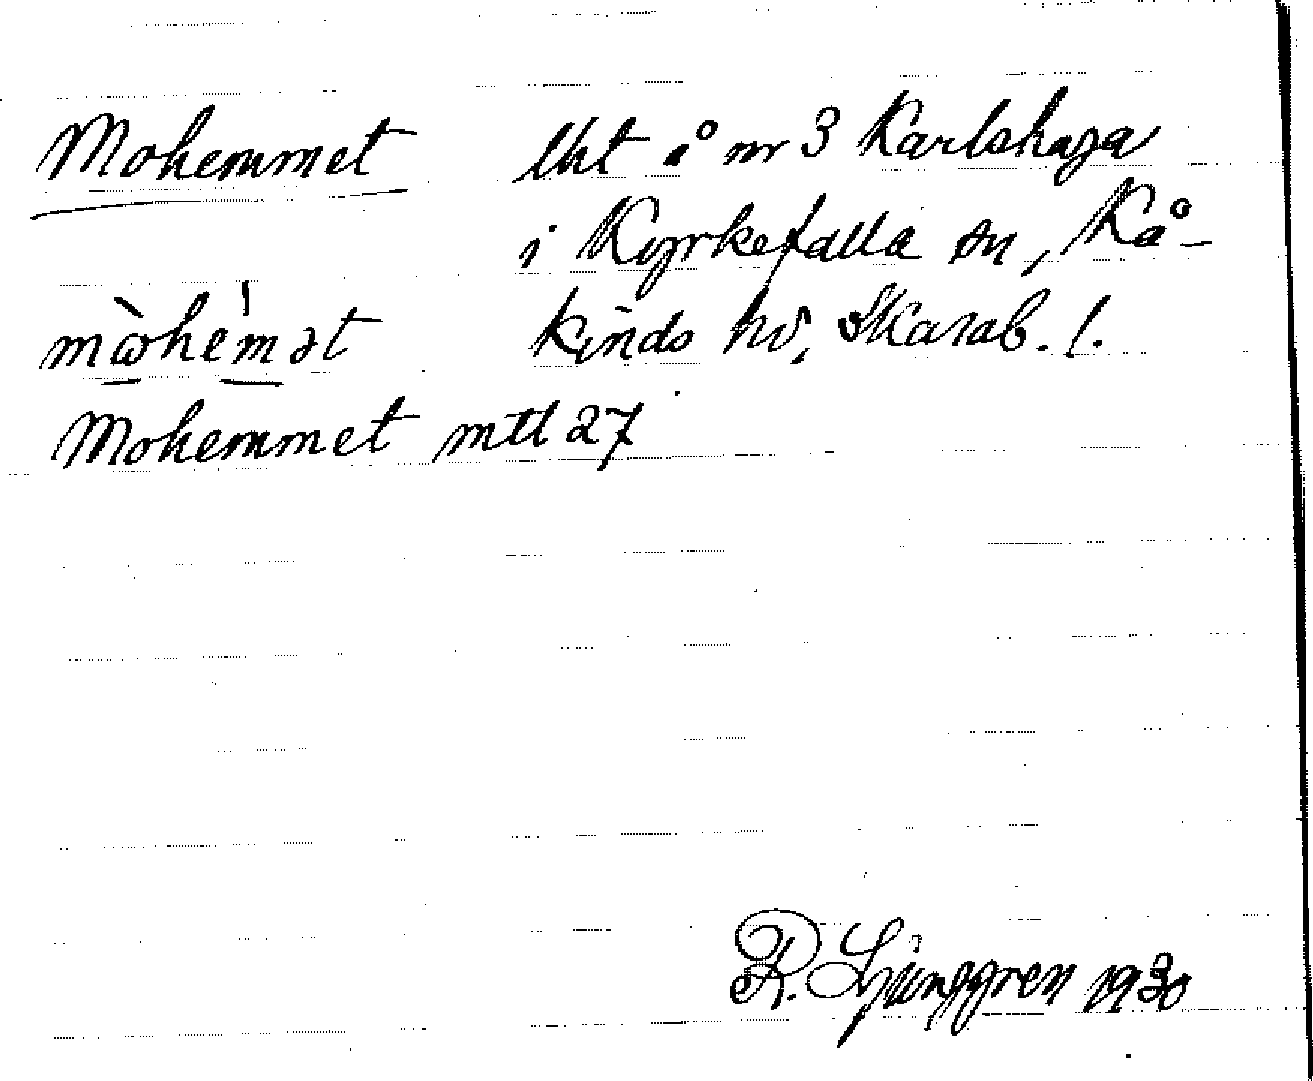 Mohemmet lht å nr 3 Karlshaga
i Kyrkefalla sn, Kå-
mὼhèmət kinds hd, Skarab. l.
Mohemmet mtl 27
R. Ljunggren 1930